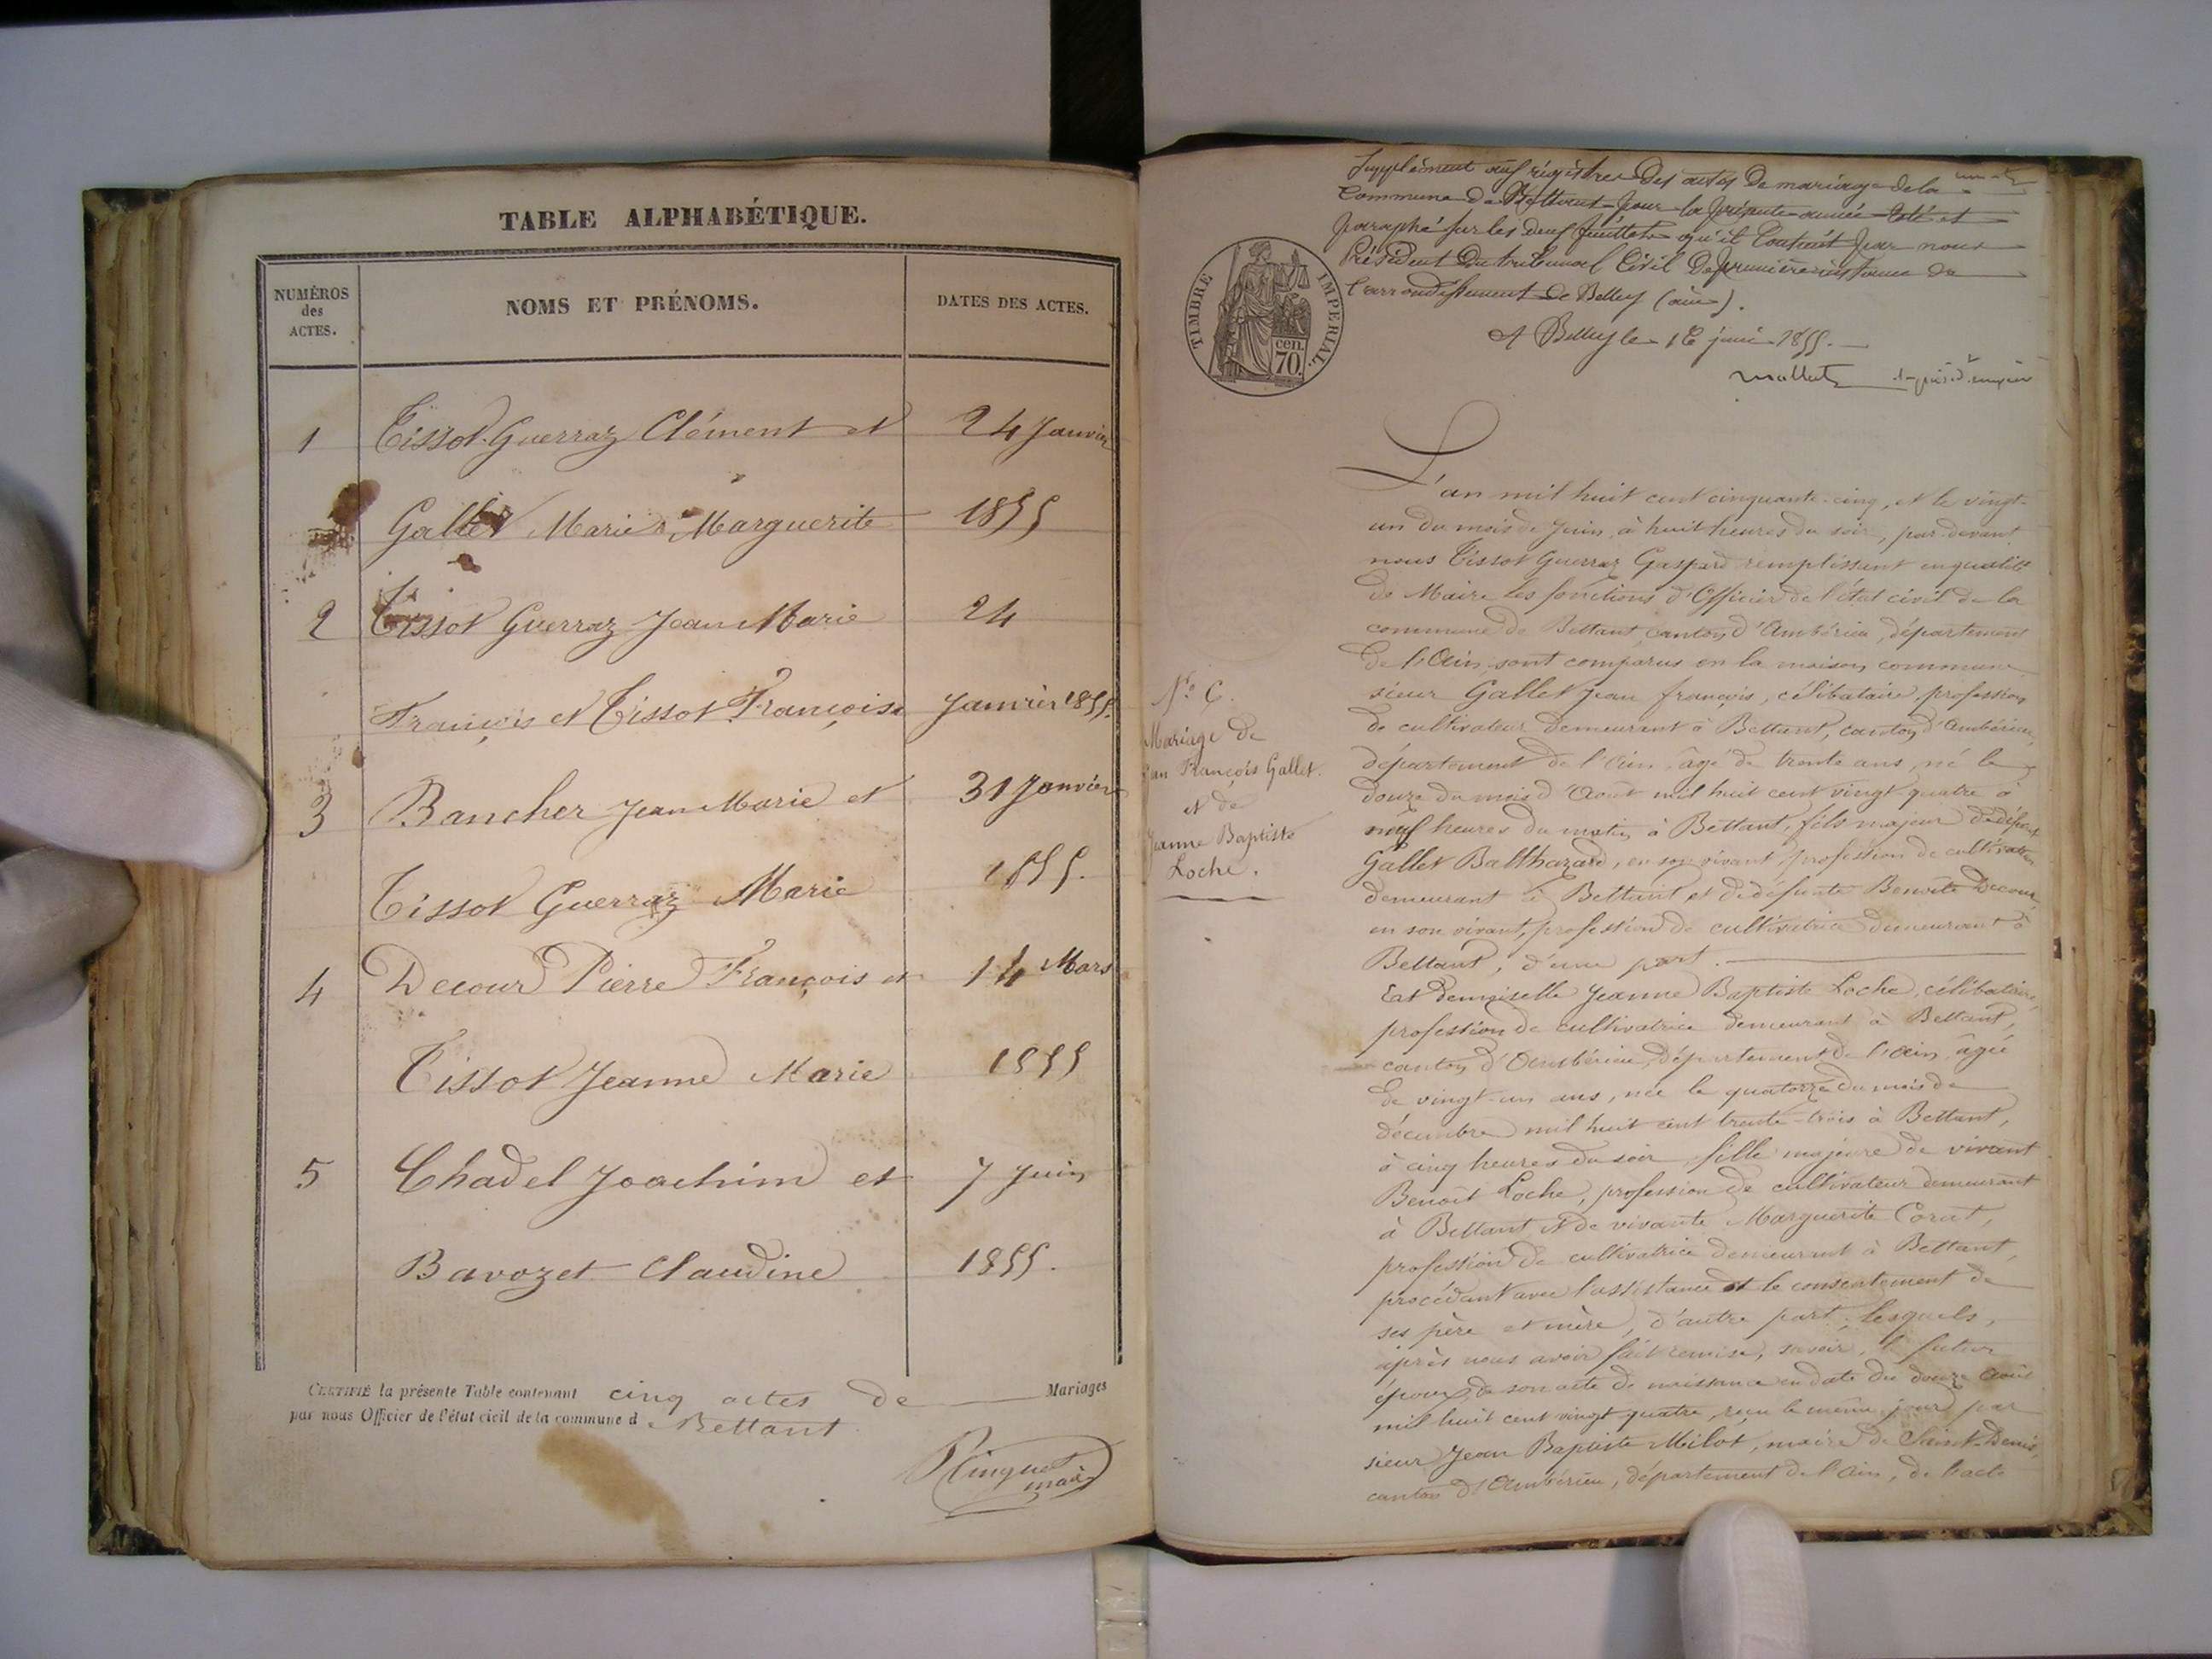 TABLE ALPHABÉTIQUE.
NUMÉROS des ACTES.
NOMS ET PRÉNOMS.
DATES DES ACTES.
1 Tissot Guerraz Clément et 24 Janvier
Gallet Marie Marguerite 1855
2 Tissot Guerraz Jean Marie 24
François et Tissot Françoise Janvier 1855.
3 Bancher Jean Marie et 31 Janvier
Tissot Guerraz Marie 1855.
4 Decour Pierre François et 14 Mars
Tissot Jeanne Marie 1855
5 Chadel Joachim et 7 Juin
Bavozet Claudine 1855.
CERTIFIÉ la présente Table contenant cinq actes de Mariages
par nous Officier de l'état civil de la commune d Bettant
Ringuet
maire
Supplément aux régistres des actes de mariage de la
Commune de Bettant pour la présente année Coté et
paraphé sur les deux feuillets qu'il Contient par nous
Président du tribunal Civil de première instance de
l'arrondissement de Belley (ain).
A Belley le 16 juin 1855.
TIMBRE IMPÉRIAL.
70. cen.
L'an mil huit cent cinquante-cinq, et le vingt-
un du mois de Juin, à huit heures du soir, par devant
nous Tissot Guerraz Gaspard remplissant en qualité
de Maire les fonctions d'Officier de l'état civil de la
commune de Bettant, canton d'Ambérieu, département
de l'Ain, sont comparus en la maison commune
sieur Gallet Jean françois, célibataire, profession
de cultivateur demeurant à Bettant, canton d'Ambérieu,
département de l'Ain, âgé de trente ans, né le
douze du mois d'Août mil huit cent vingt-quatre à
neuf heures du matin à Bettant, fils majeur de défunt
Gallet Balthazard, en son vivant, profession de cultivateur
demeurant à Bettant et de défunte Benoîte Decour
en son vivant, profession de cultivatrice demeurant à
Bettant, d'une part.
Et demoiselle Jeanne Baptiste Loche, célibataire,
profession de cultivatrice demeurant à Bettant,
canton d'Ambérieu, département de l'Ain, âgée
de vingt-un ans, née le quatorze du mois de
décembre mil huit cent trente-trois à Bettant,
à cinq heures du soir, fille majeure de vivant
Benoit Loche, profession de cultivateur demeurant
à Bettant et de vivante Marguerite Corat,
profession de cultivatrice demeurant à Bettant,
procédant avec l'assistance et le consentement de
ses père et mère, d'autre part, lesquels,
après nous avoir fait remise, savoir, le futur
époux, de son acte de naissance en date du douze Août
mil huit cent vingt-quatre, reçu le même jour par
sieur Jean Baptiste Milot, maire de Saint-Denis,
canton d'Ambérieu, département de l'Ain, de l'acte
N.o 6.
Mariage de
Jean François Gallet.
et de
Jeanne Baptiste
Loche.